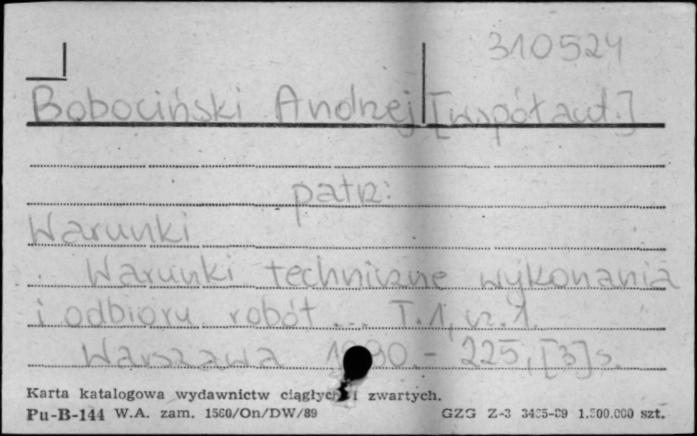 310524
Bobociński Andrzej [współaut.]
patrz:
Warunki
Warunki techniczne wykonania
i odbioru robót ... T.1, cz.1.
Warszawa 1990.- 225, [3] s.
Karta katalogowa wydawnictw ciągłych i zwartych.
Pu-B-144 W.A. zam. 1560/On/DW/89 GZG Z-3 3435-89 1.500.000 szt.